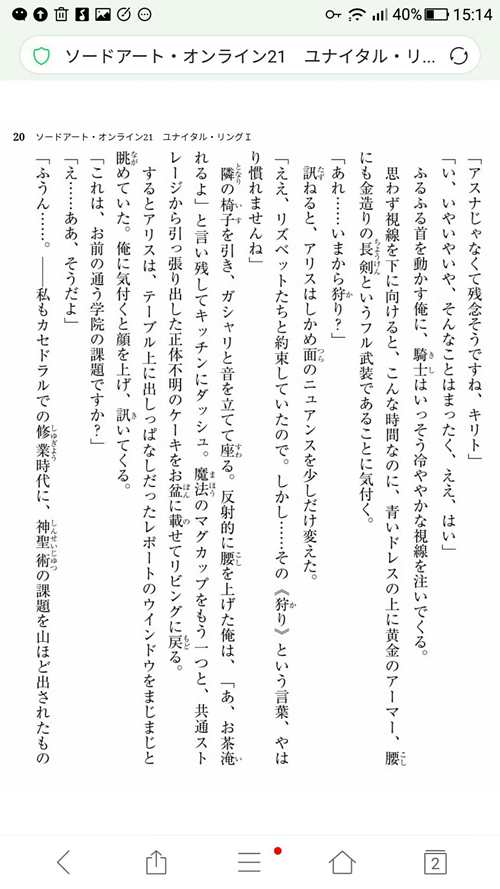 40% 15:14
ソードアート・オンライン21 ユナイタル・リ...
20 ソードアート・オンライン21 ユナイタル・リングⅠ
「アスナじゃなくて残念そうですね、キリト」
「い、いやいやいや、そんなことはまったく、ええ、はい」
ふるふる首を動かす俺に、騎士はいっそう冷ややかな視線を注いでくる。
思わず視線を下に向けると、こんな時間なのに、青いドレスの上に黄金のアーマー、腰
にも金造りの長剣というフル武装であることに気付く。
「あれ……いまから狩り?」
訊ねると、アリスはしかめ面のニュアンスを少しだけ変えた。
「ええ、リズベットたちと約束していたので。しかし……その《狩り》という言葉、やは
り慣れませんね」
隣の椅子を引き、ガシャリと音を立てて座る。反射的に腰を上げた俺は、「あ、お茶淹
れるよ」と言い残してキッチンにダッシュ。魔法のマグカップをもう一つと、共通スト
レージから引っ張り出した正体不明のケーキをお盆に載せてリビングに戻る。
するとアリスは、テーブル上に出しっぱなしだったレポートのウインドウをまじまじと
眺めていた。俺に気付くと顔を上げ、訊いてくる。
「これは、お前の通う学院の課題ですか?」
「え……ああ、そうだよ」
「ふうん……。――私もカセドラルでの修業時代に、神聖術の課題を山ほど出されたもの
2